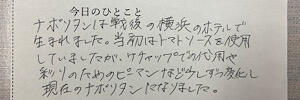 今日のひとこと
ナポリタンは戦後の横浜のホテルで
生まれました。当初はトマトソースを使用
していましたが、ケチャップでの代用や
彩りのためのピーマンなど少しずつ変化し
現在のナポリタンになりました。